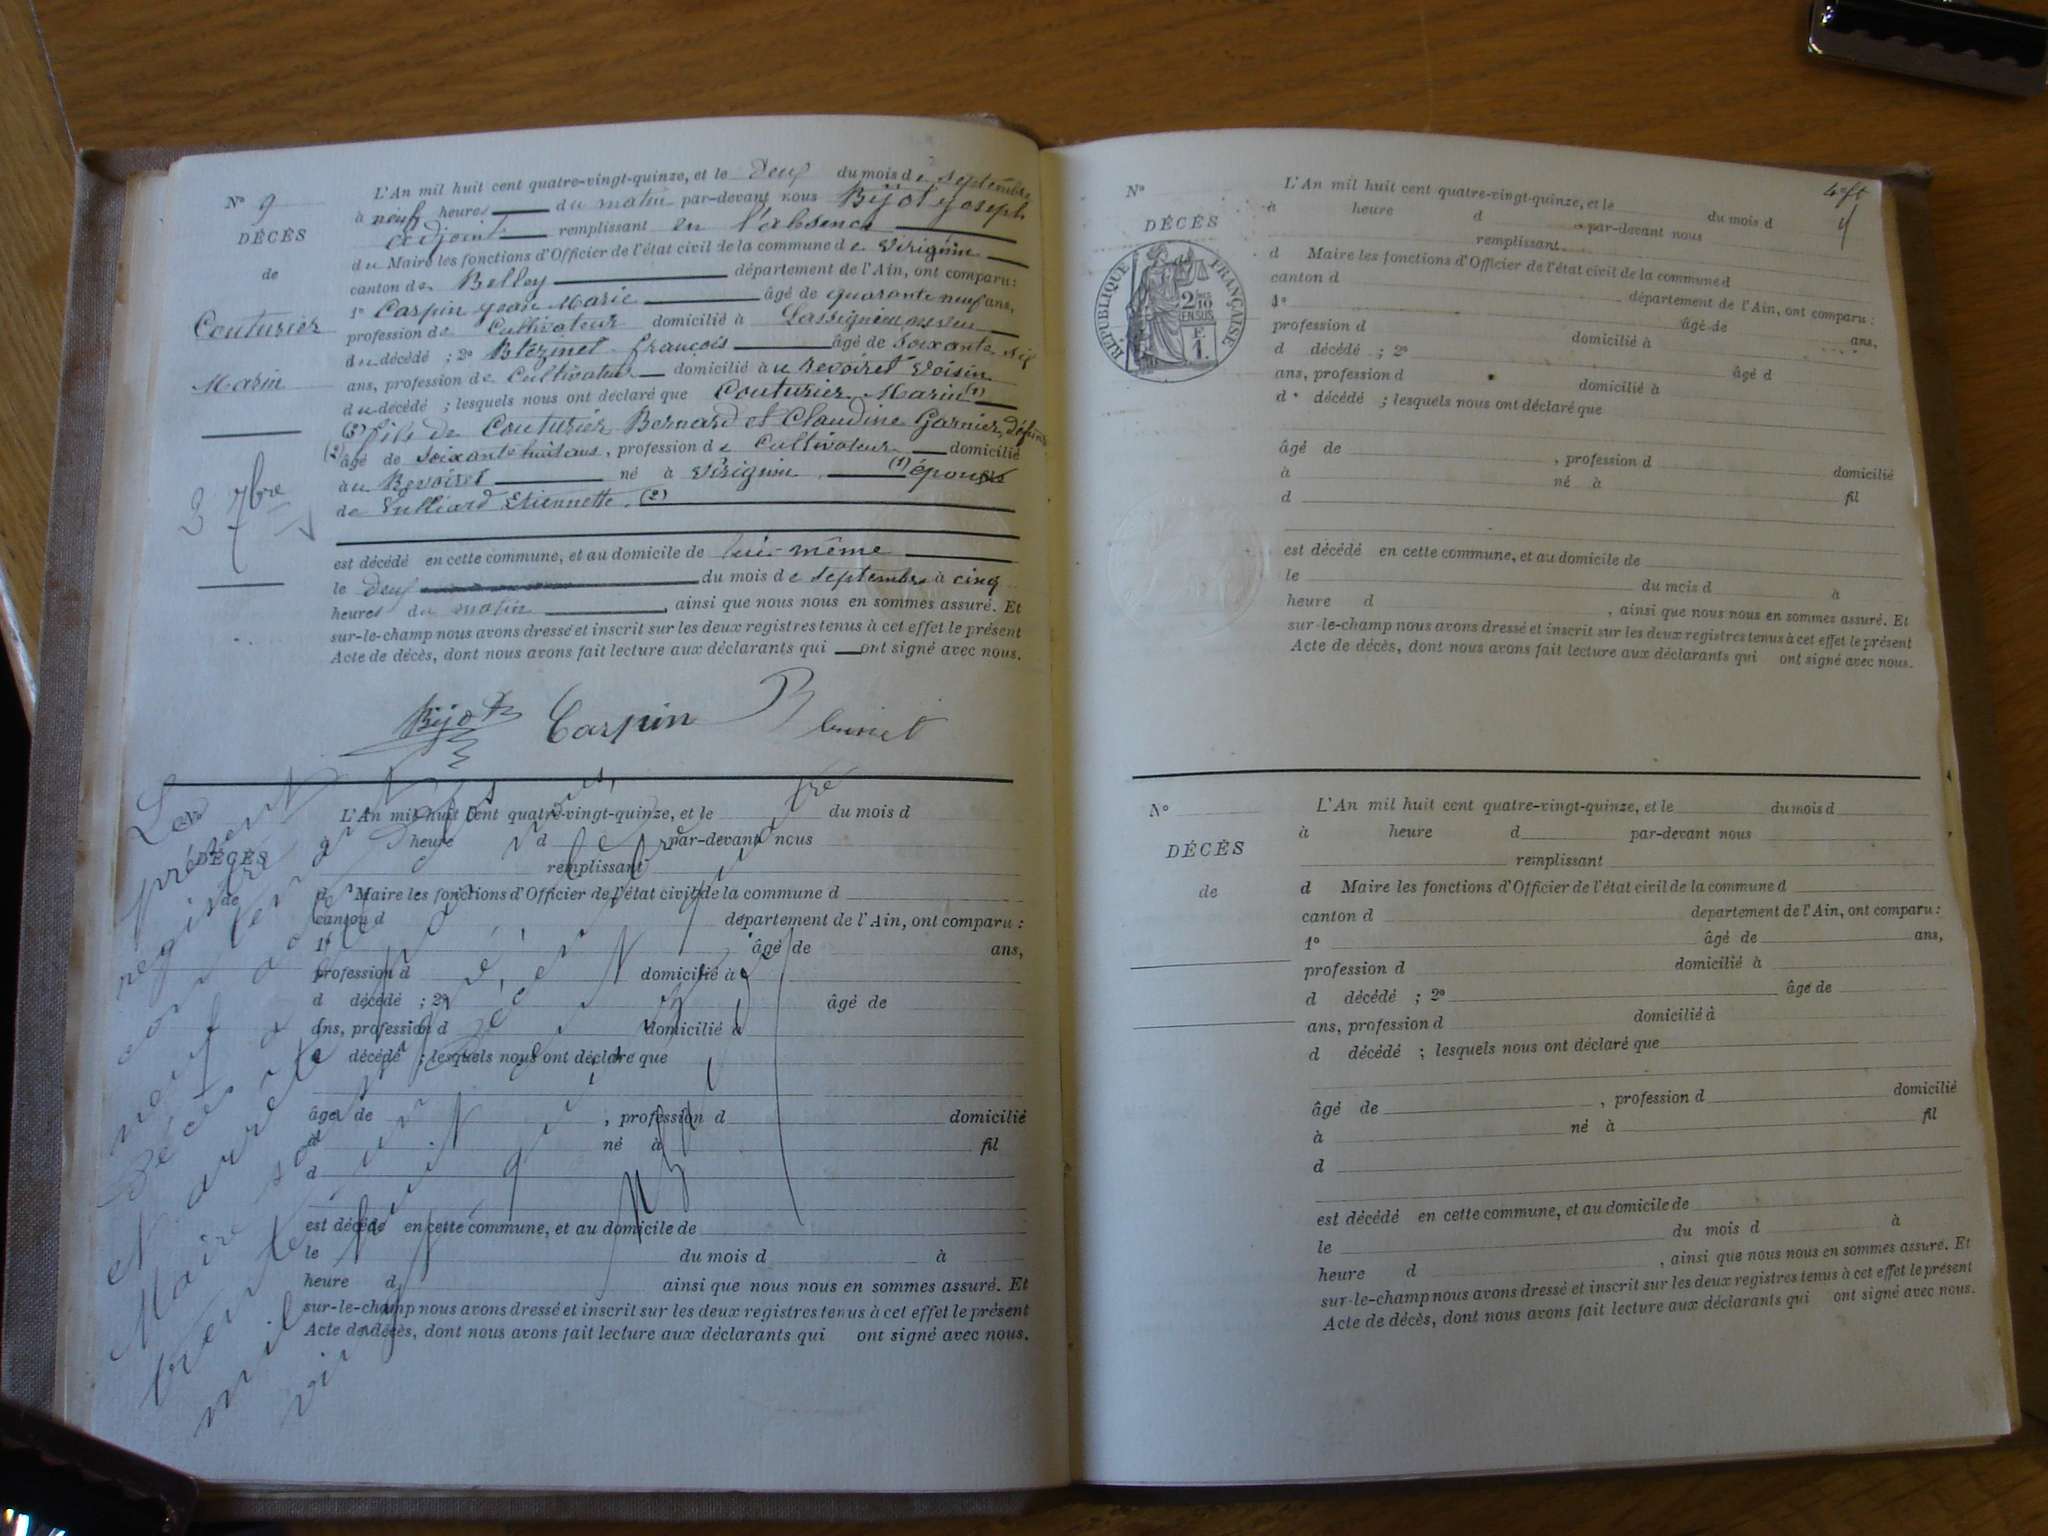 N° 9
DÉCÈS
de
Couturier
Marin
2 7bre
L'An mil huit cent quatre-vingt-quinze, et le deux du mois de septembre
à neuf heures du matin par-devant nous Bijot Joseph
adjoint remplissant en l'absence
du Maire les fonctions d'Officier de l'état civil de la commune de Virignin
canton de Belley département de l'Ain, ont comparu :
1° Carpin Jean Marie âgé de quarante neuf ans,
profession de Cultivateur domicilié à
du décédé ; 2° François âgé de soixante six
ans, profession de Cultivateur domicilié au revoiret voisin
du décédé ; lesquels nous ont déclaré que Couturier Marin (1)
(3) fils de Couturier Bernard et Claudine Garnier, défunts
(2) âgé de soixante huit ans, profession de Cultivateur domicilié
au Revoiret né à Virignin (1) époux
de Vulliard Etiennette. (2)
est décédé en cette commune, et au domicile de lui-même
le deux du mois de septembre à cinq
heures du matin , ainsi que nous nous en sommes assuré. Et
sur-le-champ nous avons dressé et inscrit sur les deux registres tenus à cet effet le présent
Acte de décès, dont nous avons fait lecture aux déclarants qui ont signé avec nous.
Bijot Carpin
L'An mil huit cent quatre-vingt-quinze, et le du mois d
heure d par-devant nous
DÉCÈS
remplissant
de
d Maire les fonctions d'Officier de l'état civil de la commune d
canton d département de l'Ain, ont comparu :
1° âgé de ans,
profession d domicilié à
d décédé ; 2° âgé de
ans, profession d domicilié à
d décédé ; lesquels nous ont déclaré que
âgé de , profession d domicilié
à né à fil
d
est décédé en cette commune, et au domicile de
le du mois d à
heure d ainsi que nous nous en sommes assuré. Et
sur-le-champ nous avons dressé et inscrit sur les deux registres tenus à cet effet le présent
Acte de décès, dont nous avons fait lecture aux déclarants qui ont signé avec nous.
Le présent
registre
contenant
neuf actes de
Décès
et arrêté par
Maire soussigné
trente et un Décembre
mil huit cent quatre
vingt quinze
N°
DÉCÈS
RÉPUBLIQUE FRANÇAISE
2 10
EN SUS
F.
1.
L'An mil huit cent quatre-vingt-quinze, et le du mois d
à heure d par-devant nous
remplissant
d Maire les fonctions d'Officier de l'état civil de la commune d
canton d département de l'Ain, ont comparu :
1° âgé de ans,
profession d domicilié à
d décédé ; 2° âgé d
ans, profession d domicilié à
d décédé ; lesquels nous ont déclaré que
âgé de , profession d domicilié
à né à fil
d
est décédé en cette commune, et au domicile de
le du mois d à
heure d , ainsi que nous nous en sommes assuré. Et
sur-le-champ nous avons dressé et inscrit sur les deux registres tenus à cet effet le présent
Acte de décès, dont nous avons fait lecture aux déclarants qui ont signé avec nous.
N°
DÉCÈS
de
L'An mil huit cent quatre-vingt-quinze, et le du mois d
à heure d par-devant nous
remplissant
d Maire les fonctions d'Officier de l'état civil de la commune d
canton d département de l'Ain, ont comparu :
1° âgé de ans,
profession d domicilié à
d décédé ; 2° âgé de
ans, profession d domicilié à
d décédé ; lesquels nous ont déclaré que
âgé de , profession d domicilié
à né à fil
d
est décédé en cette commune, et au domicile de
le du mois d à
heure d , ainsi que nous nous en sommes assuré. Et
sur-le-champ nous avons dressé et inscrit sur les deux registres tenus à cet effet le présent
Acte de décès, dont nous avons fait lecture aux déclarants qui ont signé avec nous.